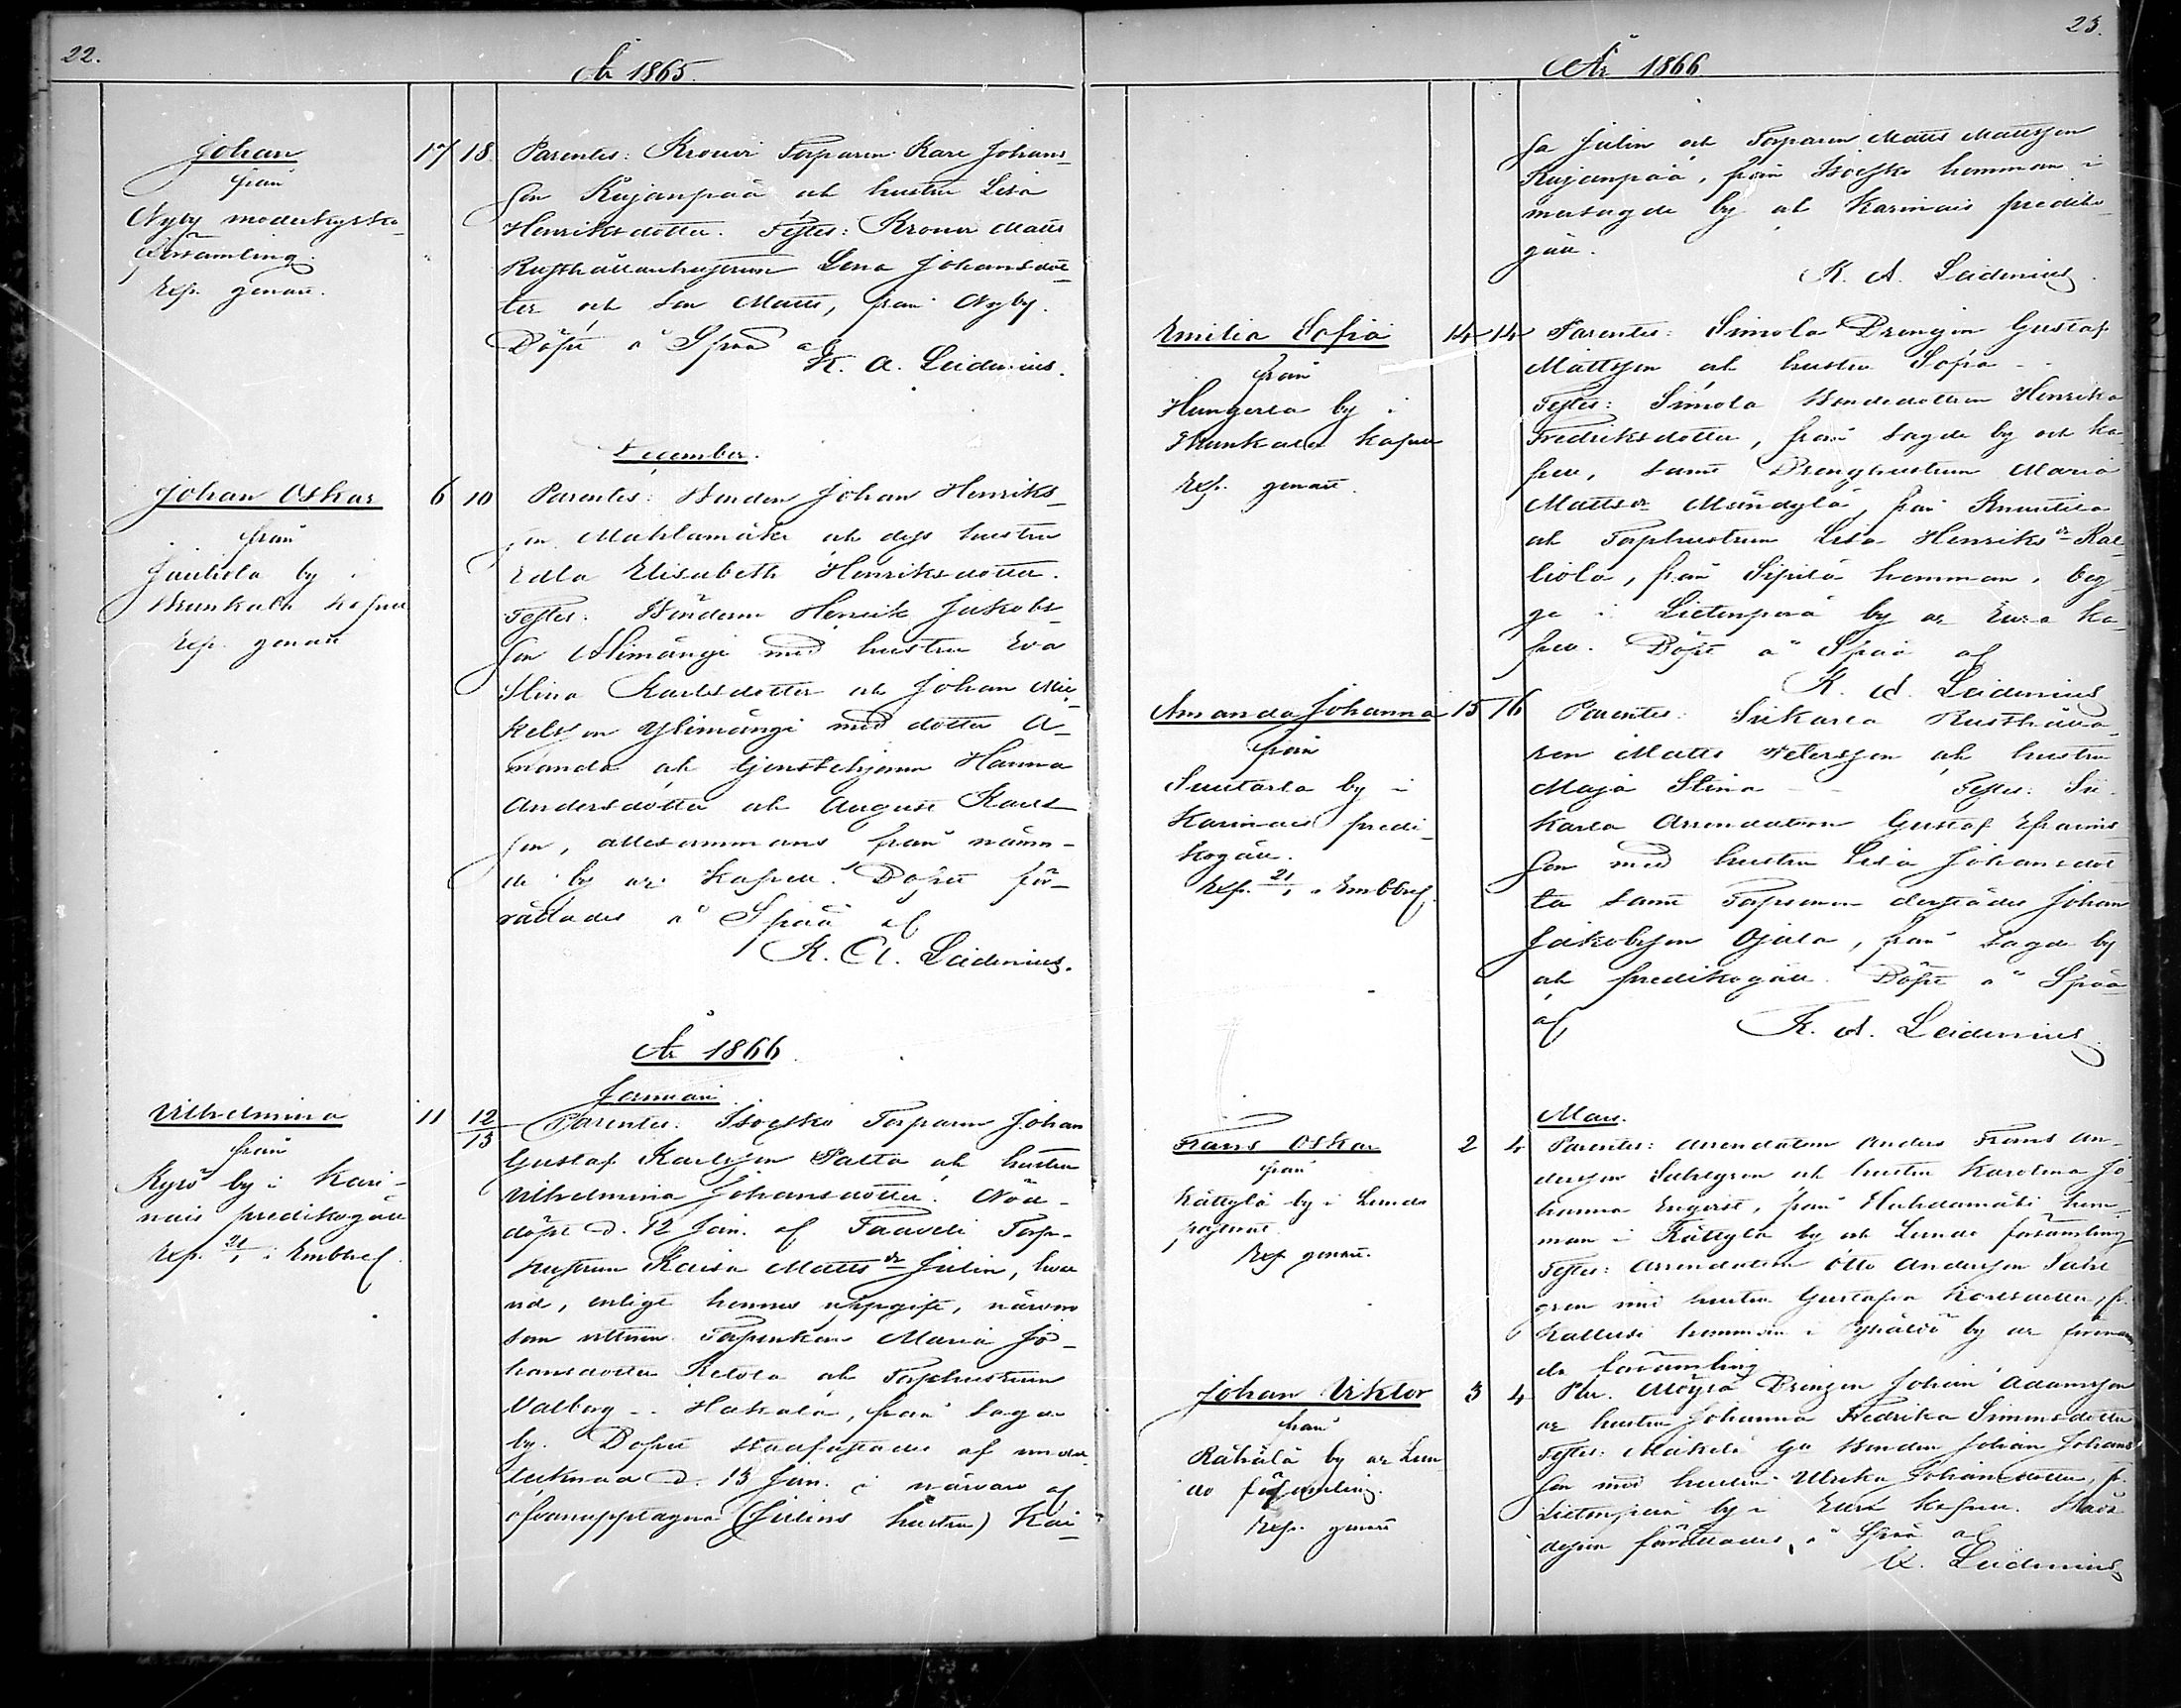 22.
År 1865.
Johan
från
Nyby moderkyrko-
församling.
Exp. genast.
17 18. Parentes: Krouvi Torparen Karl Johans-
son Kujanpää och hustru Lisa
Henriksdotter. Testes: Krouvi Matts
Rusthållarhustrun Lena Johansdot-
ter och son Matts, från Nyby.
Döpt å Spaa af
K. A. Leidenius.
December.
Johan Oskar
från
Juvhola by i
Prunkala kapell
Exp. genast
6 10 Parentes: Bonden Johan Henriks-
son Mahlamäki och dess hustru
Edla Elisabeth Henriksdotter.
Testes: Bonden Henrik Jakobs-
son Alimängi med hustru Eva
Stina Karlsdotter och Johan Mi-
kelsson Ylimängi med dotter A-
manda och tjenstehjonen Hanna
Andersdotter och August Karls
son, allesammans från nämn-
de by och kapell. Dopet för-
rättades å Spaa af
K. A. Leidenius.
År 1866.
Januari
Vilhelmina
från
Kyrö by i Kari-
nais predikogäll
Exp. 21/1 i Embbref.
11 12/13 Parentes: Isoesko Torparen Johan
Gustaf Karlsson Palta och hustru
Vilhelmina Johansdotter. Nöd-
döpt d. 12 Jan. af Taaveli Torp-
hustrun Kaisa Matts dr Julin, hvar
vid, enligt hennes uppgift, närvoro
som vittnen Torpenkan Maria Jo-
hansdotter Ketola och Torphustrun
Valborg - - Hakala, från sagde
by. Dopet stadfästades af under
tecknad d. 13 Jan. i närvaro af
ofvanupptagna (Julins hustru) Kai-
23.
År 1866
sa Julin och Torparen Matts Mattsson
Kujanpää, från Isoesko hemman i
mersagde by och Karinais prediko-
gäll.
K. A. Leidenius.
Emilia Sofia
från
Hungerla by i
Prunkala kapell
Exp. genast.
14 14 Parentes: Simola Drengen Gustaf
Mattsson och hustru Sofia - -
Testes: Simola Bondedottren Henrika
Fredriksdotter, från sagde by och ka-
pell, samt Drenghustrun Maria
Matts dr Mändylä, från
och Torphustrun Lisa Henriks dr Kal-
liola, från Sipilä hemman, beg-
ge i Lietenperä by och Eura ka-
pell. Döpt å Spaa af
K. A. Leidenius
Amanda Johanna
från
Suutarla by i
Karinais predi-
kogäll.
Exp. 21/1 i Embbref.
15 16 Parentes: Sukarla Rusthålla-
ren Matts Petersson och hustru
Maja Stina - - Testes: Su-
karla Arrendatorn Gustaf Efraims-
son med hustru Lisa Johansdot
ter samt Torparen derstädes Johan
Jakobsson Ojala, från sagde by
och predikogäll. Döpt å Spaa
af
K. A. Leidenius.
Mars.
Frans Oskar
från
Kättylä by i Lundo
pastorat.
Exp. genast.
2 4 Parentes: Arrendatorn Anders Frans An-
dersson Sahlgren och hustru Karolina Jo-
hanna Engvist, från Huhdamäki hem-
man i Kättylä by och Lundo församling
Testes: Arrendatorn Otto Andersson Sahl
gren med hustru Gustafva Karlsdotter, fr.
Kallusi hemman i by och förenäm
de församling
Johan Viktor
från
Rähälä by och Lun
do församling.
Exp. genast
3 4 Par. Möyrä Drengen Johan Adamsson
och hustru Johanna Fredrika Simonsdotter
Testes: Mäkelä Bonden Johan Johans
son med hustru Ulrika Johansdotter, fr.
Lietenperä by i Eura kapell. Båda
dopen förrättades å Spaa af
K. Leidenius